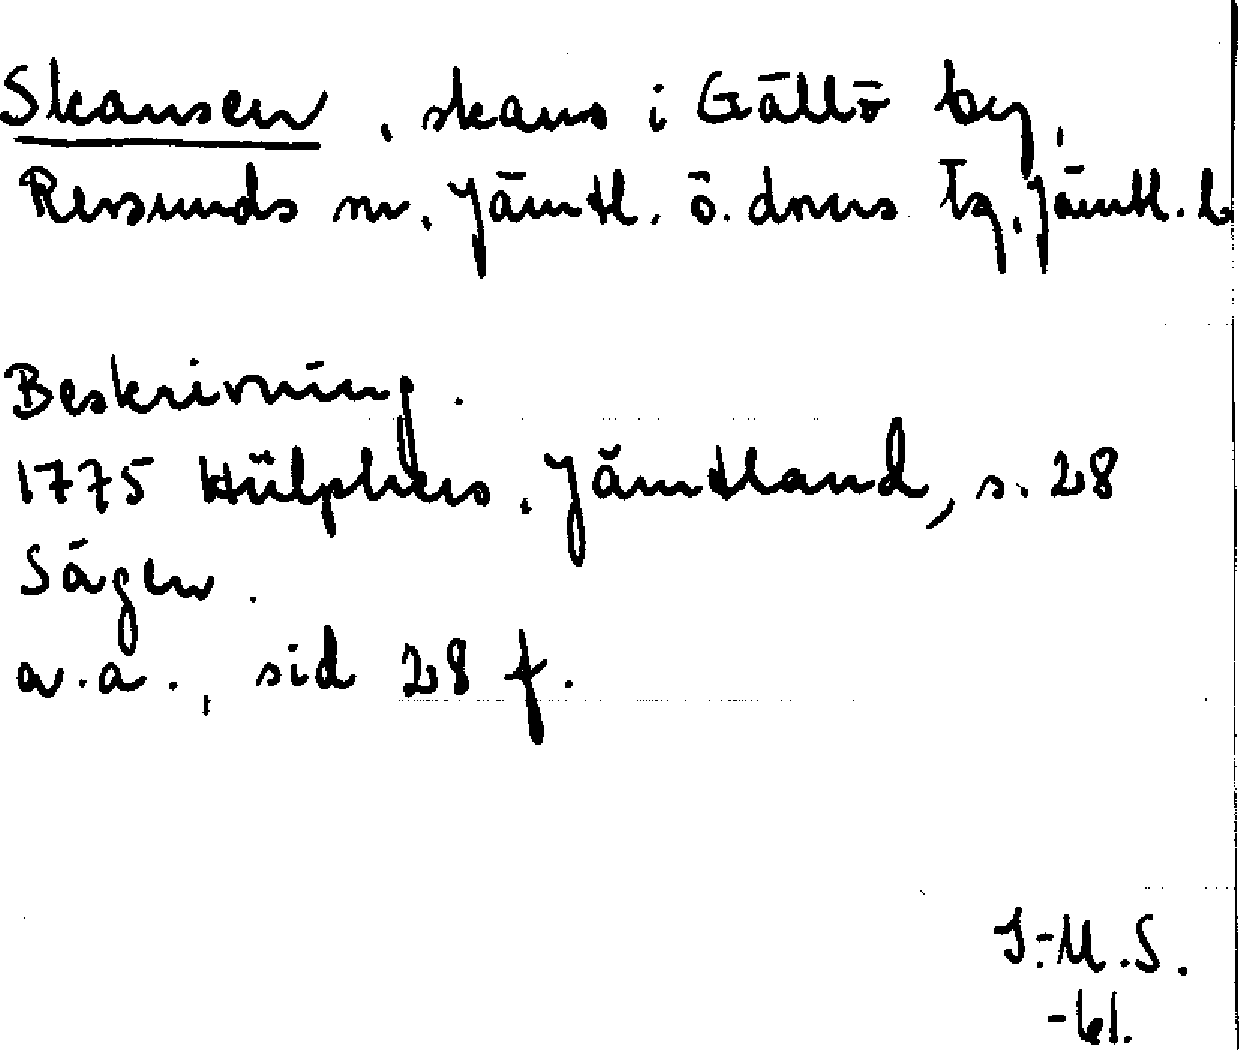 Skansen, skans i Gällö by,
Revsunds sn. Jämtl. ö. doms tg, Jämtl. l
Beskrivning.
1775 Hülphers. Jämtland, s. 28
Sägen.
a.a., sid 28 f.
I.-M.S.
-61.